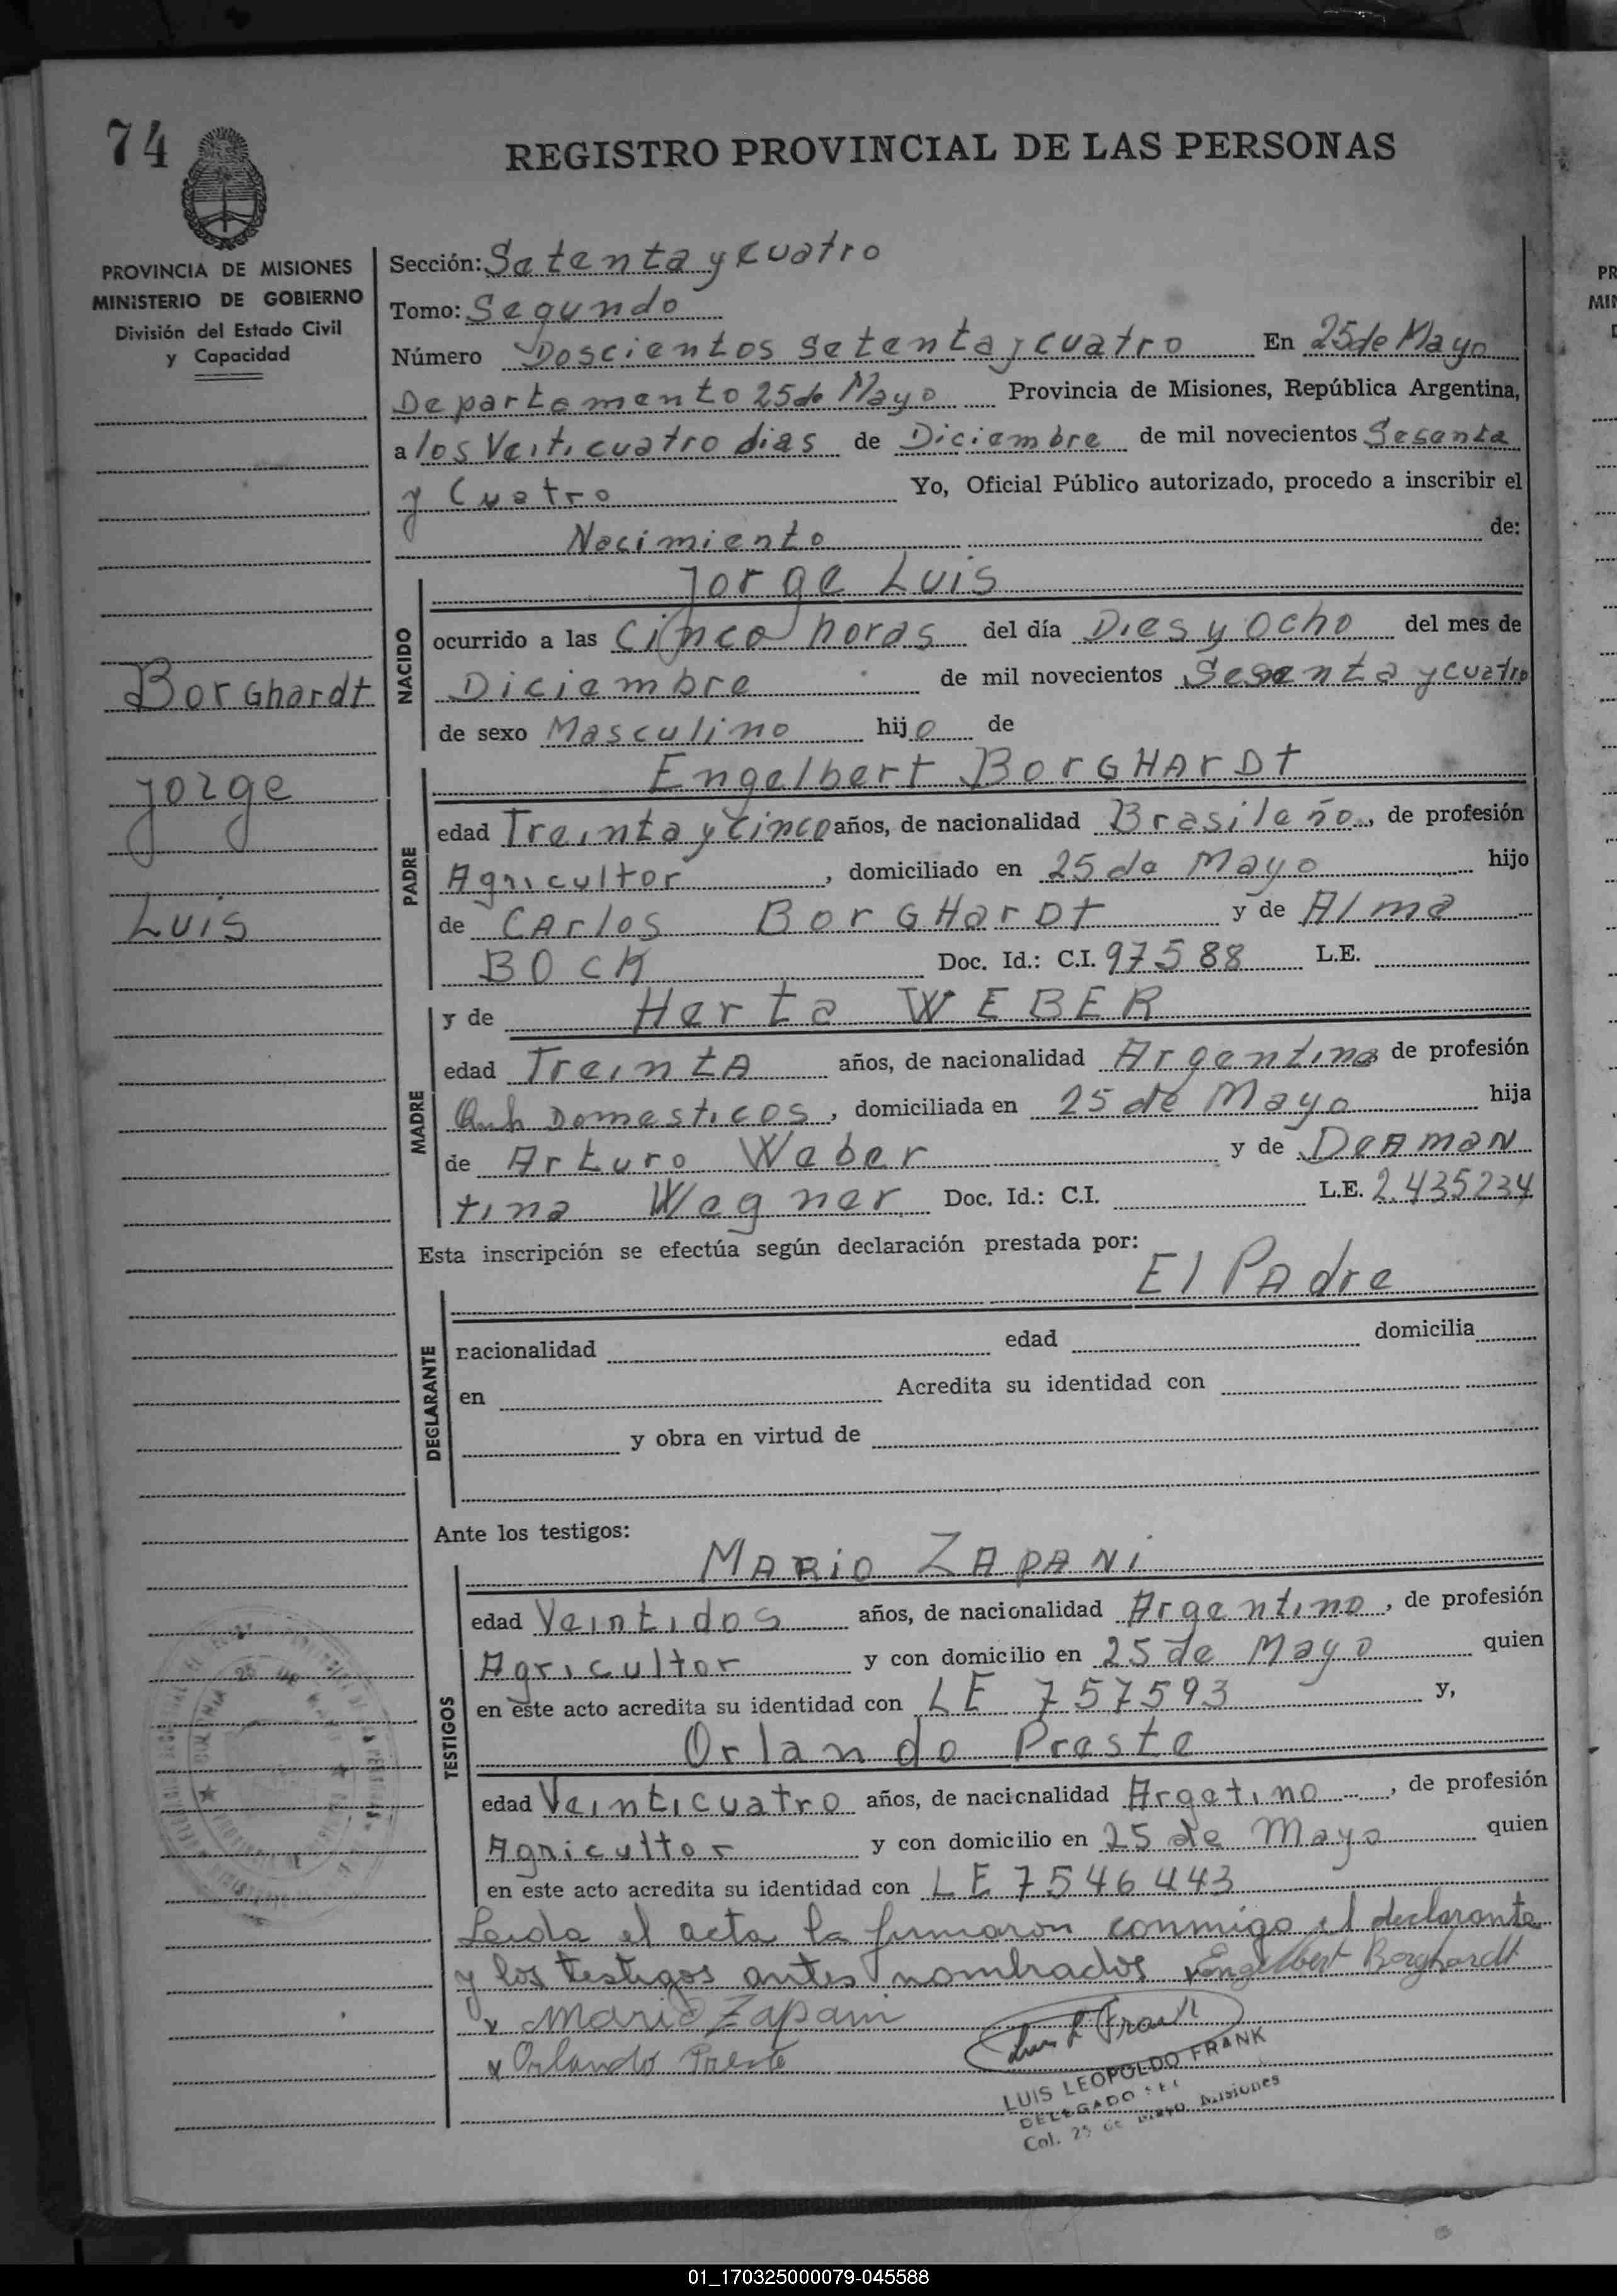 74
REGISTRO PROVINCIAL DE LAS PERSONAS
PROVINCIA DE MISIONES
MINISTERIO DE GOBIERNO
División del Estado Civil
y Capacidad
Borghardt
Jorge
Luis
Sección: Setenta y cuatro
Tomo: Segundo
Número Doscientos setenta y cuatro En 25 de Mayo
Departamento 25 de Mayo Provincia de Misiones, República Argentina,
a los Veiti cuatro dias de Diciembre de mil novecientos Sesenta
y Cuatro Yo, Oficial Público autorizado, procedo a inscribir el
Nacimiento de:
NACIDO
Jorge Luis
ocurrido a las Cinco horas del día Dies y Ocho del mes de
Diciembre de mil novecientos Sesenta y cuatro
de sexo Masculino hijo de
PADRE
Engelbert BorGHArDt
edad Treinta y Cinco años, de nacionalidad Brasileño, de profesión
Agricultor, domiciliado en 25 de Mayo hijo
de CArlos BorGHarDt y de Alma
BOCK Doc. Id.: C.I. 97588 L.E.
MADRE
y de Herta WEBER
edad TreintA años, de nacionalidad Argentina de profesión
Domesticos, domiciliada en 25 de Mayo hija
de Arturo Weber y de DeAmaN
tina Wegner Doc. Id.: C.I. L.E. 2.435234
Esta inscripción se efectúa según declaración prestada por:
El PAdre
DECLARANTE
nacionalidad edad domicilia
en Acredita su identidad con
y obra en virtud de
Ante los testigos:
TESTIGOS
MARiO ZAPANi
edad Veintidos años, de nacionalidad Argentino, de profesión
Agricultor y con domicilio en 25 de Mayo quien
en este acto acredita su identidad con LE 757593 y,
Orlando Preste
edad Veinticuatro años, de nacionalidad Argetino, de profesión
Agricultor y con domicilio en 25 de Mayo quien
en este acto acredita su identidad con LE 7546443
Leida el acta la firmaron conmigo el declarante
y los testigos antes nombrados x Engelbert Borghardt
x Mario Zapani
x Orlando Preste
Luis L Frank
LUIS LEOPOLDO FRANK
DELEGADO
Col. 25 de Mayo Misiones
01_170325000079-045588